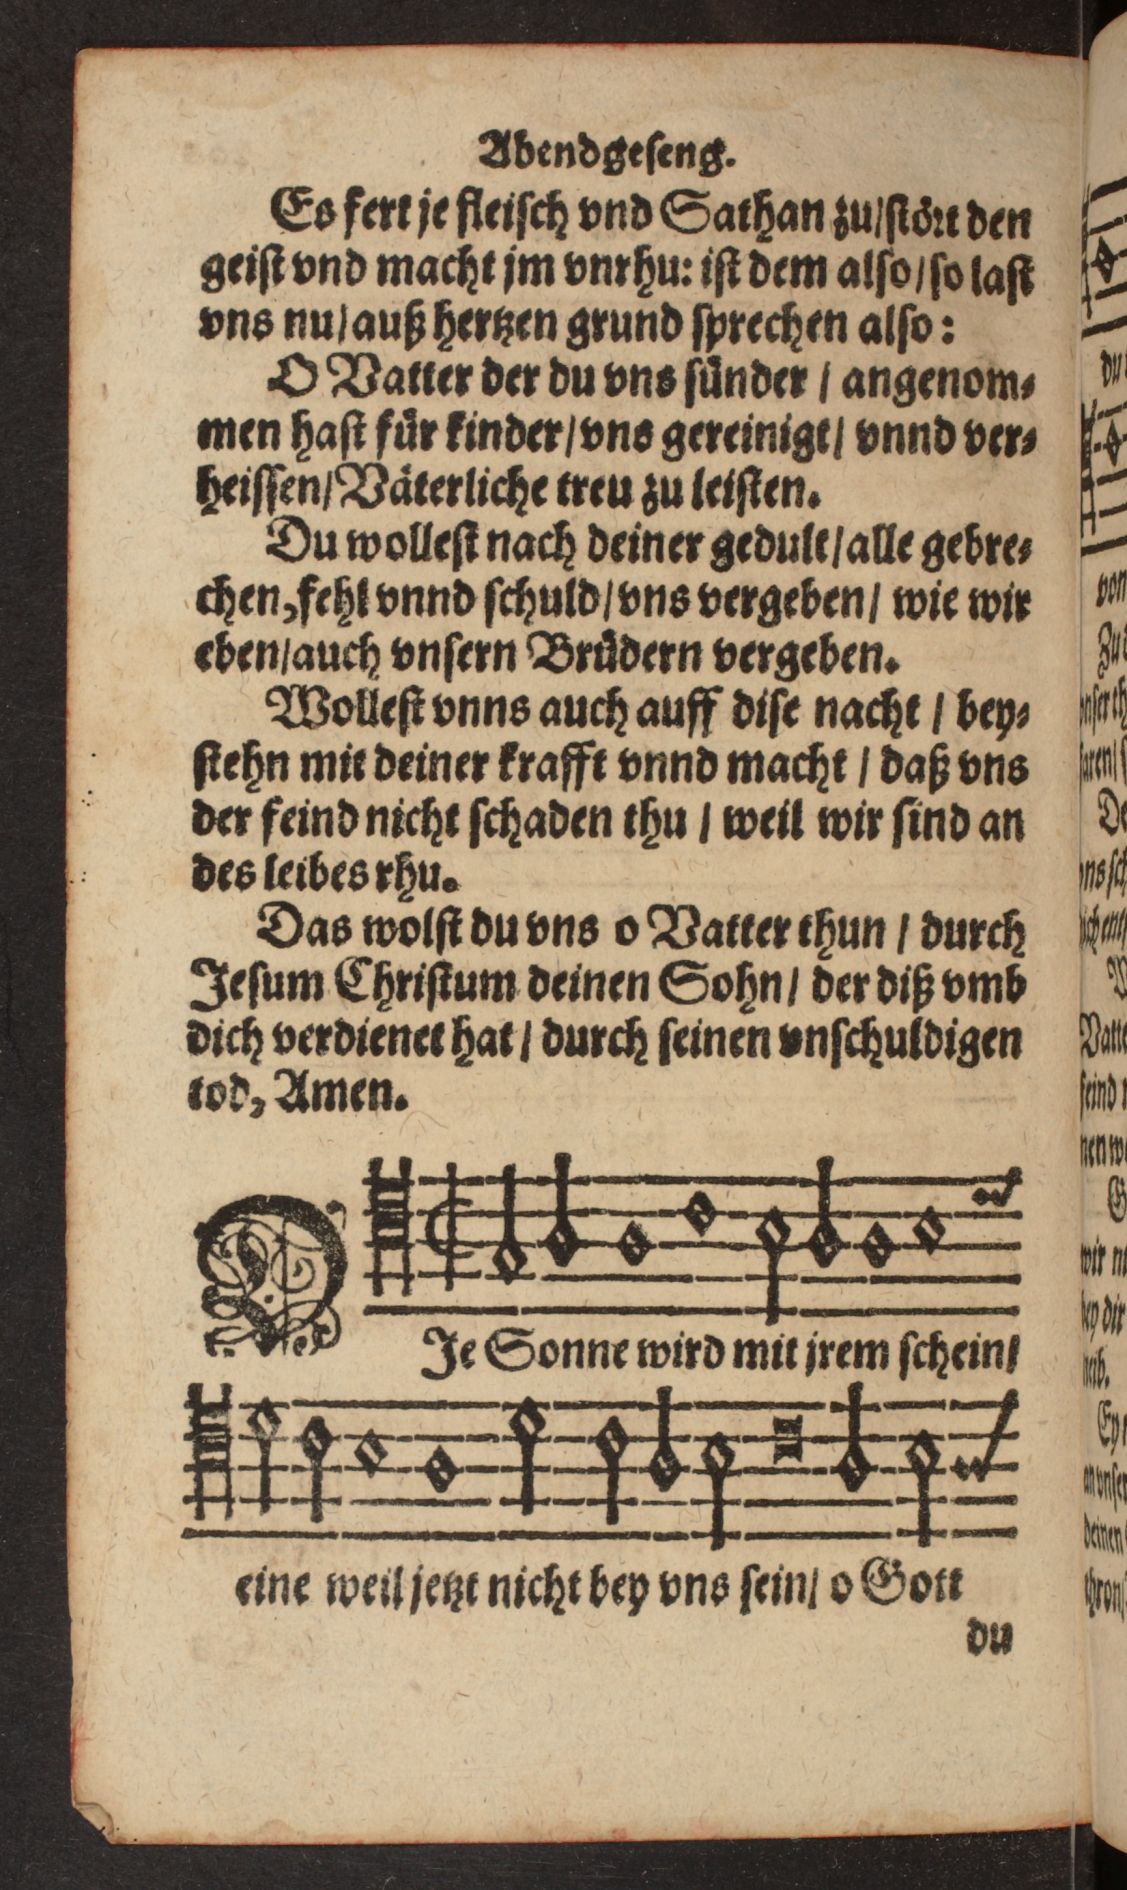 Abendgeseng.
Es fert je fleisch vnd Sathan zu/stört den
geist vnd macht jm vnrhu: ist dem also/so last
vns nu/auß hertzen grund sprechen also:
O Vatter der du vns sünder / angenom-
men hast für kinder/vns gereinigt/ vnnd ver-
heissen/Väterliche treu zu leisten.
Du wollest nach deiner gedult/alle gebre-
chen, fehl vnnd schuld/vns vergeben/ wie wir
eben/auch vnsern Brüdern vergeben.
Wollest vnns auch auff dise nacht / bey-
stehn mit deiner krafft vnnd macht / daß vns
der feind nicht schaden thu / weil wir sind an
des leibes rhu.
Das wolst du vns o Vatter thun / durch
Jesum Christum deinen Sohn/ der diß vmb
dich verdienet hat/ durch seinen vnschuldigen
tod, Amen.
DJe Sonne wird mit jrem schein/
eine weil jetzt nicht bey vns sein/ o Gott
du